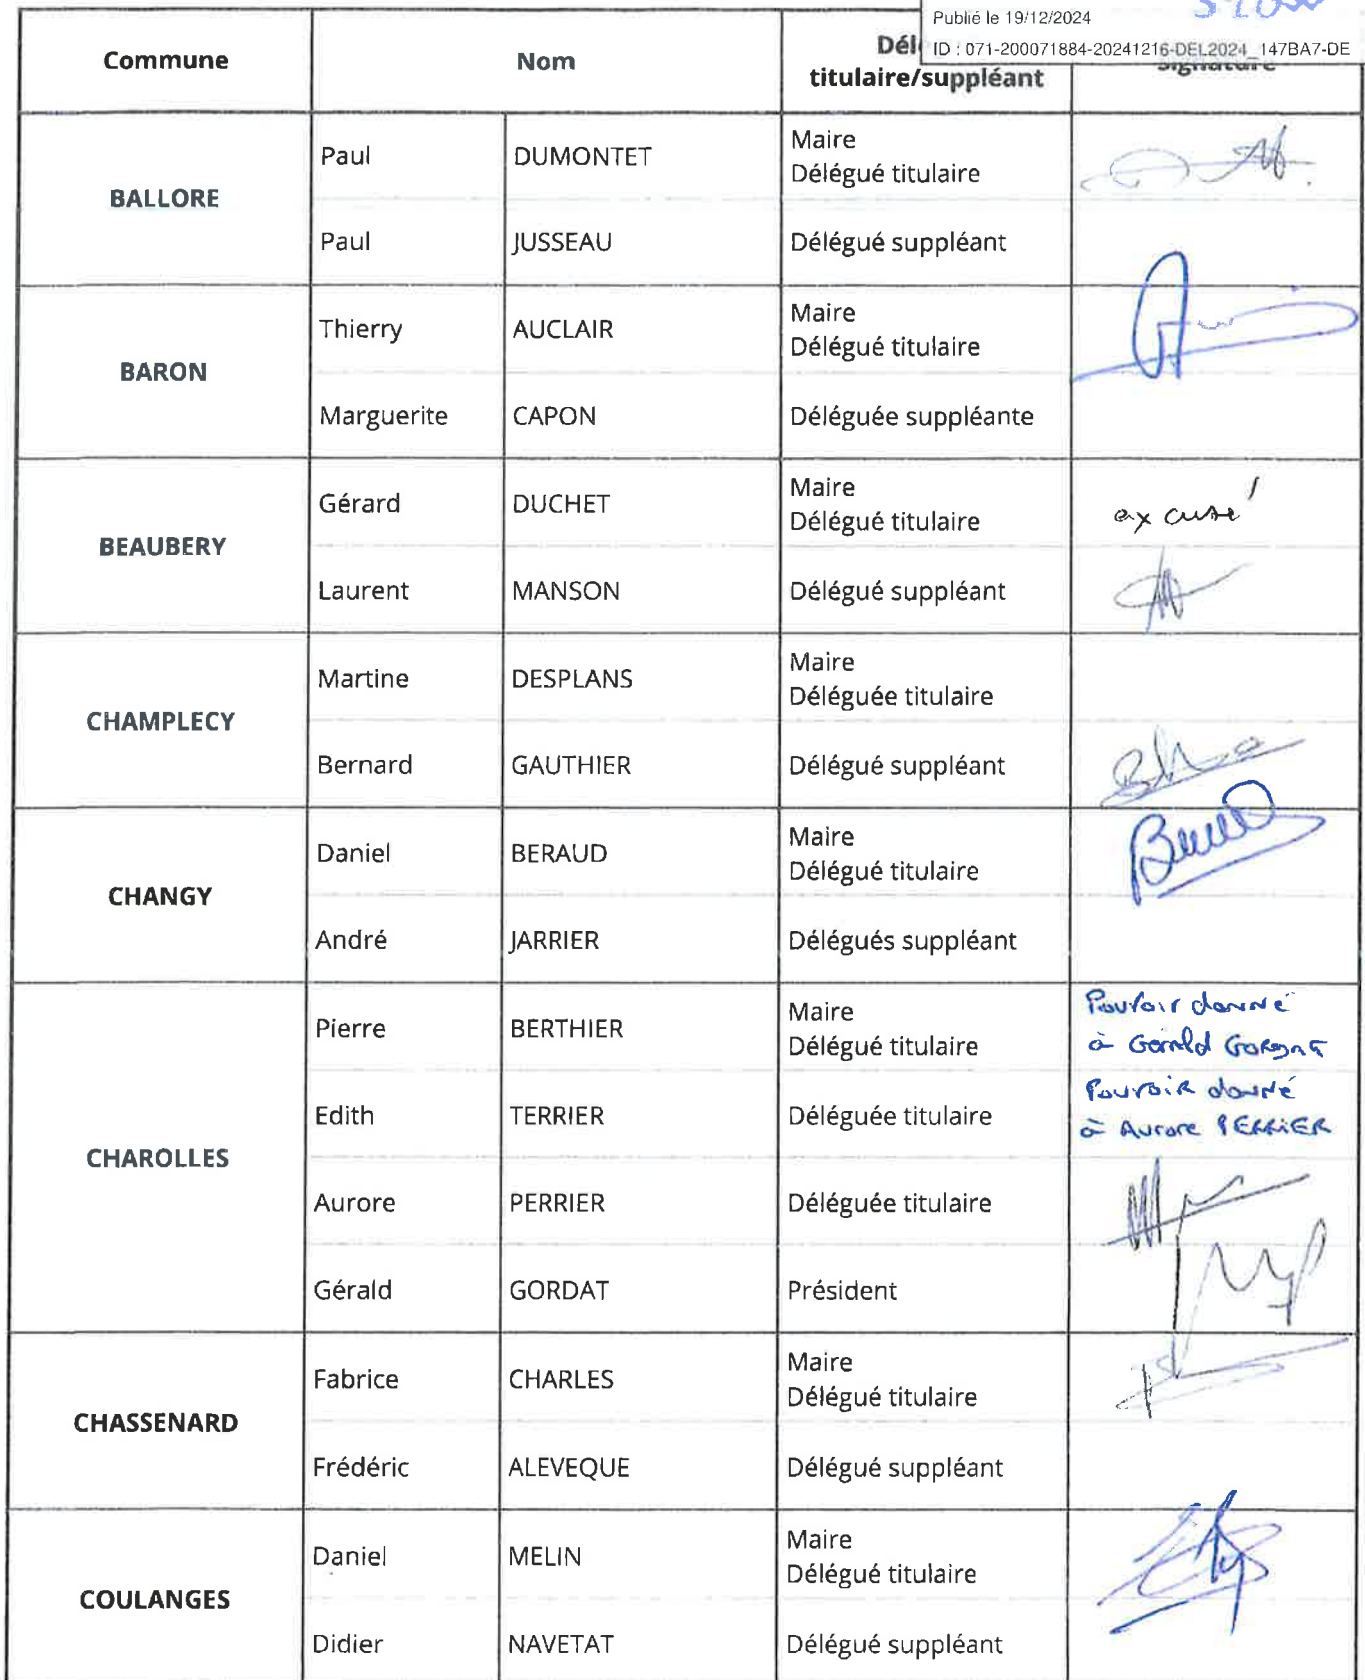 Publié le 19/12/2024
ID : 071-200071884-20241216-DEL2024_147BA7-DE
Commune
Nom
titulaire/suppléant
Signature
BALLORE
Paul
DUMONTET
Maire
Délégué titulaire
Paul
JUSSEAU
Délégué suppléant
BARON
Thierry
AUCLAIR
Maire
Délégué titulaire
Marguerite
CAPON
Déléguée suppléante
BEAUBERY
Gérard
DUCHET
Maire
Délégué titulaire
excusé
Laurent
MANSON
Délégué suppléant
CHAMPLECY
Martine
DESPLANS
Maire
Déléguée titulaire
Bernard
GAUTHIER
Délégué suppléant
CHANGY
Daniel
BERAUD
Maire
Délégué titulaire
André
JARRIER
Délégués suppléant
CHAROLLES
Pierre
BERTHIER
Maire
Délégué titulaire
Pouvoir donné
à Gérald GORDAT
Edith
TERRIER
Déléguée titulaire
Pouvoir donné
à Aurore PERRIER
Aurore
PERRIER
Déléguée titulaire
Gérald
GORDAT
Président
CHASSENARD
Fabrice
CHARLES
Maire
Délégué titulaire
Frédéric
ALEVEQUE
Délégué suppléant
COULANGES
Daniel
MELIN
Maire
Délégué titulaire
Didier
NAVETAT
Délégué suppléant